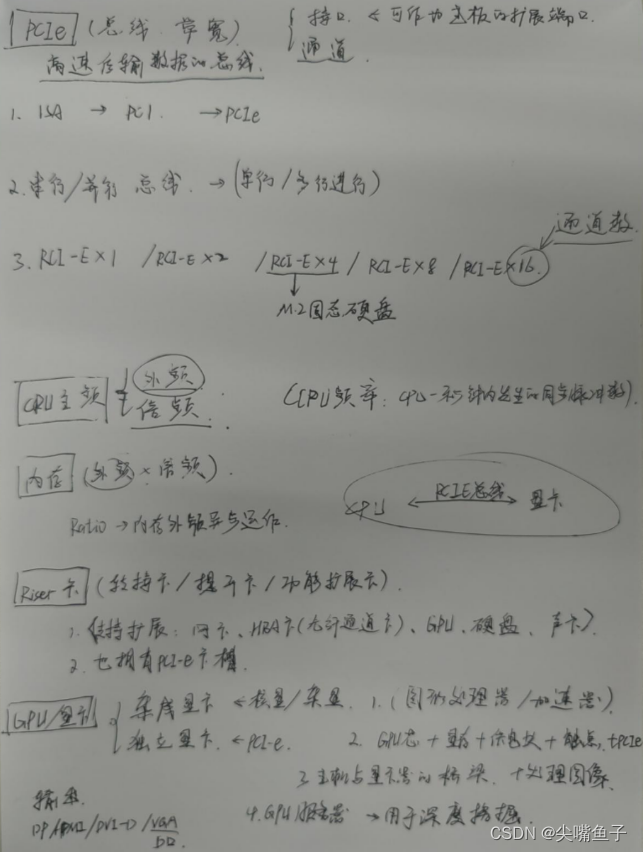 PCIe (总线 带宽) { 接口 ← 可作为主板的扩展端口.
通道
高速传输数据的总线.
1. ISA → PCI → PCIe
2. 串行/并行 总线. → (单行/多行进行)
通道数.
3. RCI-E×1 /RCI-E×2 /RCI-E×4 / RCI-E×8 /RCI-E×16.
M.2固态硬盘
CPU主频 { 外频
倍频.
(CPU频率: CPU一秒钟内发生的同步脉冲数).
内存 (外频×倍频).
CPU PCIE总线 显卡
Ratio → 内存外频异步运作.
Riser卡 (转接卡/提升卡/功能扩展卡).
1. 支持扩展: 网卡、HBA卡(光纤通道卡)、GPU、硬盘、声卡)
2. 也拥有PCI-e卡槽
GPU/显卡 { 集成显卡 ← 核显/集显 1. (图形处理器/加速器)
独立显卡. ← PCI-e. 2. GPU芯 + 显存 + 供电块 + 触点. +PCIe
3. 主机与显示器的桥梁. +处理图像.
输出.
4. GPU服务器 → 用于深度挖掘.
DP/HDMI/DVI-D/VGA
CSDN @尖嘴鱼子